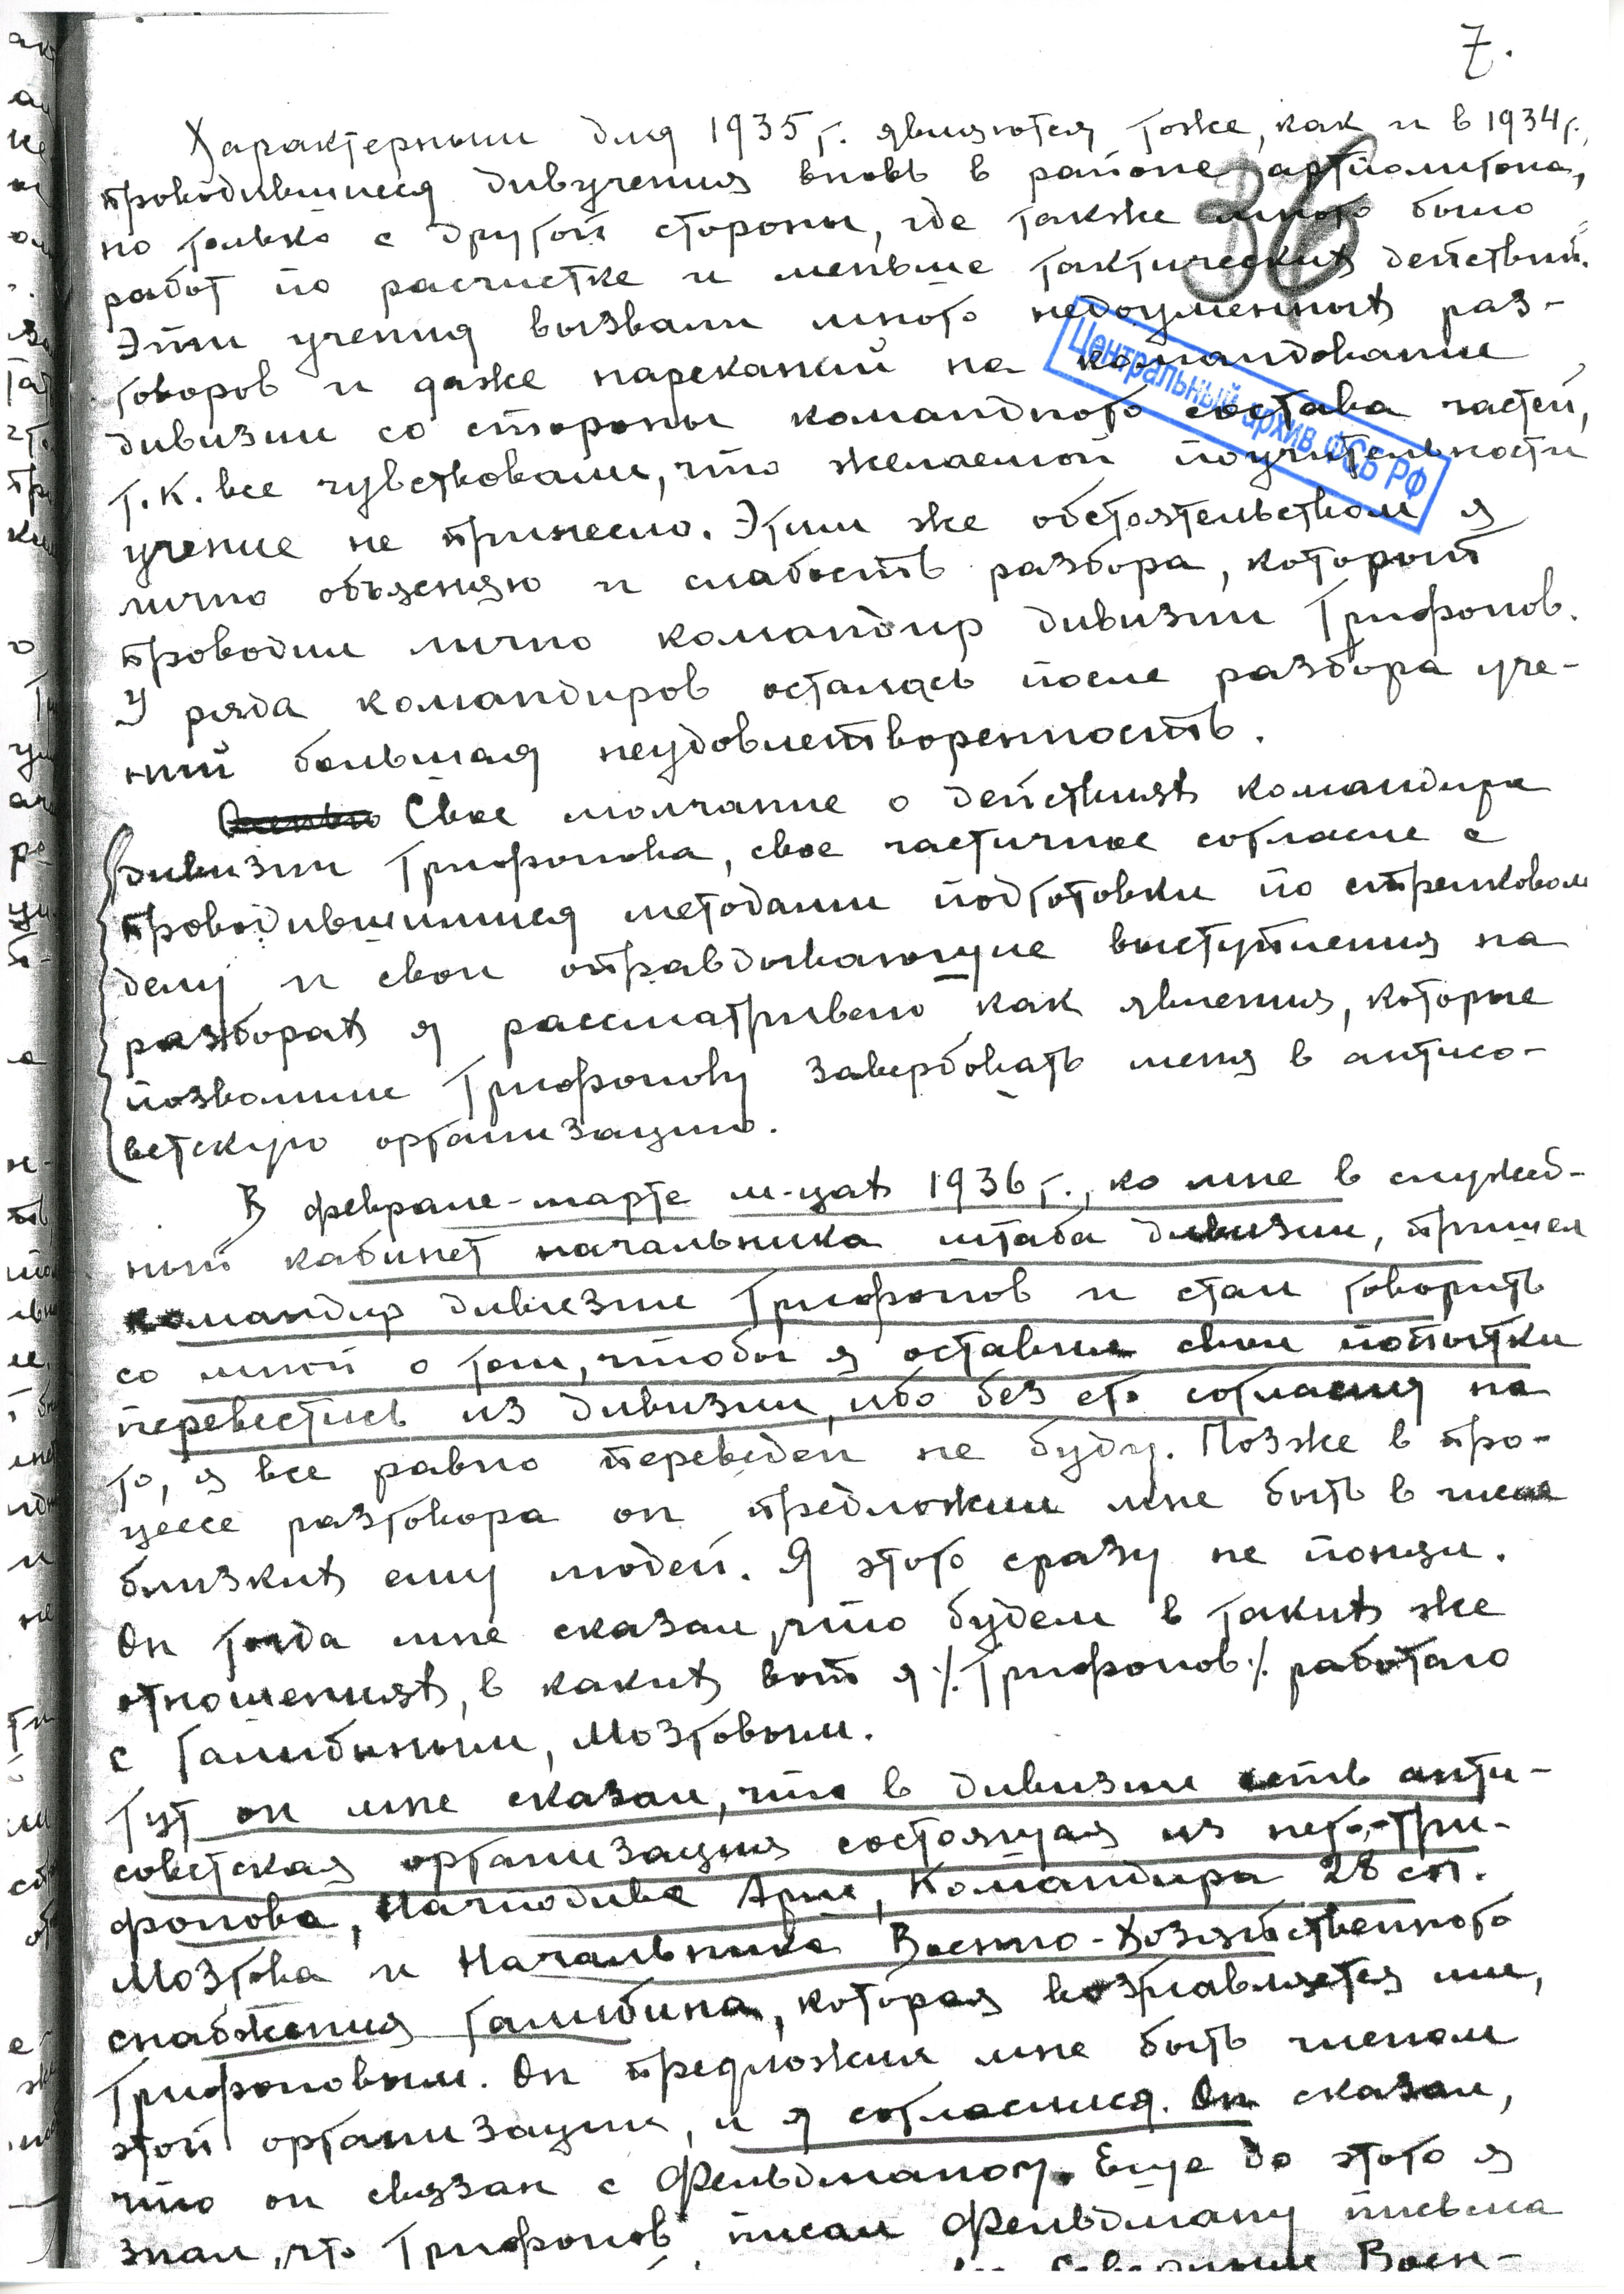 7.
36
Характерным для 1935 г. являются тоже, как и в 1934 г.,
проводившиеся дивучения вновь в районе артполигона,
но только с другой стороны, где также много было
работ по расчистке и меньше тактических действий.
Эти учения вызвали много недоуменных раз-
говоров и даже нареканий на командование
дивизии со стороны командного состава частей,
т.к. все чувствовали, что желаемой поучительности
учение не принесло. Этим же обстоятельством я
лично объясняю и слабость разбора, который
проводил лично командир дивизии Трифонов.
У ряда командиров осталась после разбора уче-
ний большая неудовлетворенность.
Свое молчание о действиях командира
дивизии Трифонова, свое частичное согласие с
проводившимися методами подготовки по стрелковом
делу и свои оправдывающие выступления на
разборах я рассматриваю как явления, которые
позволили Трифонову завербовать меня в антисо-
ветскую организацию.
В феврале-марте м-цах 1936 г., ко мне в служеб-
ный кабинет начальника штаба дивизии, пришел
командир дивизии Трифонов и стал говорить
со мной о том, чтобы я оставил свои попытки
перевестись из дивизии, ибо без его согласия на
то, я все равно переведен не буду. Позже в про-
цессе разговора он предложил мне быть в числе
близких ему людей. Я этого сразу не понял.
Он тогда мне сказал, что будем в таких же
отношениях, в каких вот я /. Трифонов ./ работаю
с Галибиным, Мозговым.
Тут он мне сказал, что в дивизии есть анти-
советская организация состоящая из него, Три-
фонова, Начподива Арш, Командира 28 сп.
Мозгова и Начальника Военно-Хозяйственного
снабжения Галибина, которая возглавляется им,
Трифоновым. Он предложил мне быть членом
этой организации, и я согласился. Он сказал,
что он связан с Фельдманом. Еще до этого я
знал, что Трифонов писал Фельдману письма
Воен-
Центральный архив ФСБ РФ